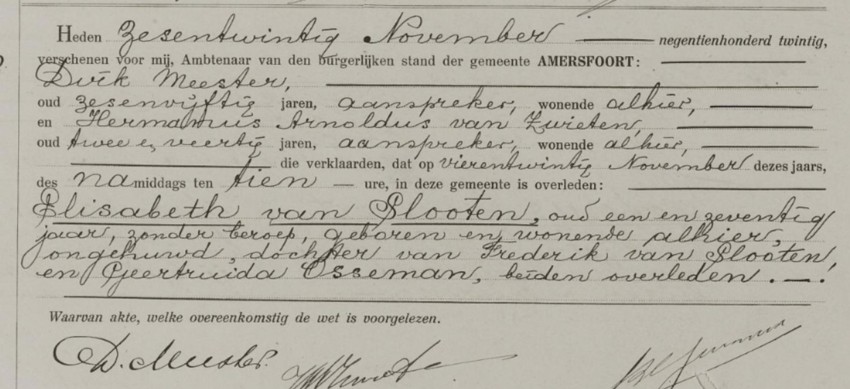 Heden zesentwintig November negentienhonderd twintig,
verschenen voor mij, Ambtenaar van den burgerlijken stand der gemeente AMERSFOORT:
Dirk Meester,
oud zesenvijftig jaren, aanspreker, wonende alhier,
en Hermannus Arnoldus van Zwieten,
oud twee en veertig jaren, aanspreker, wonende alhier,
die verklaarden, dat op vierentwintig November dezes jaars,
des namiddags ten tien ure, in deze gemeente is overleden:
Elisabeth van Slooten, oud een en zeventig
jaar, zonder beroep, geboren en wonende alhier,
ongehuwd, dochter van Frederik van Slooten,
en Geertruida Osseman, beiden overleden.
Waarvan akte, welke overeenkomstig de wet is voorgelezen.
D. Meester.